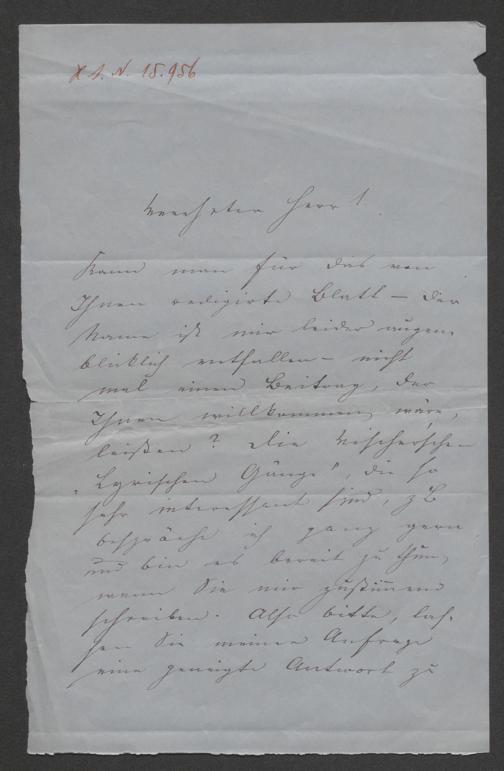 H. I. N. 15.956
Verehrter Herr!
Kann man für das von
Ihnen redigirte Blatt – der
Name ist mir leider augen-
blicklich entfallen – nicht
mal einen Beitrag, der
Ihnen willkommen wäre,
leisten? Die Vischer'schen
„Lyrischen Gänge", die so
sehr interessant sind, z B
bespräche ich ganz gern
und bin es bereit zu thun,
wenn Sie mir zustimmend
schreiben. Also bitte, las-
sen Sie meiner Anfrage
eine geneigte Antwort zu